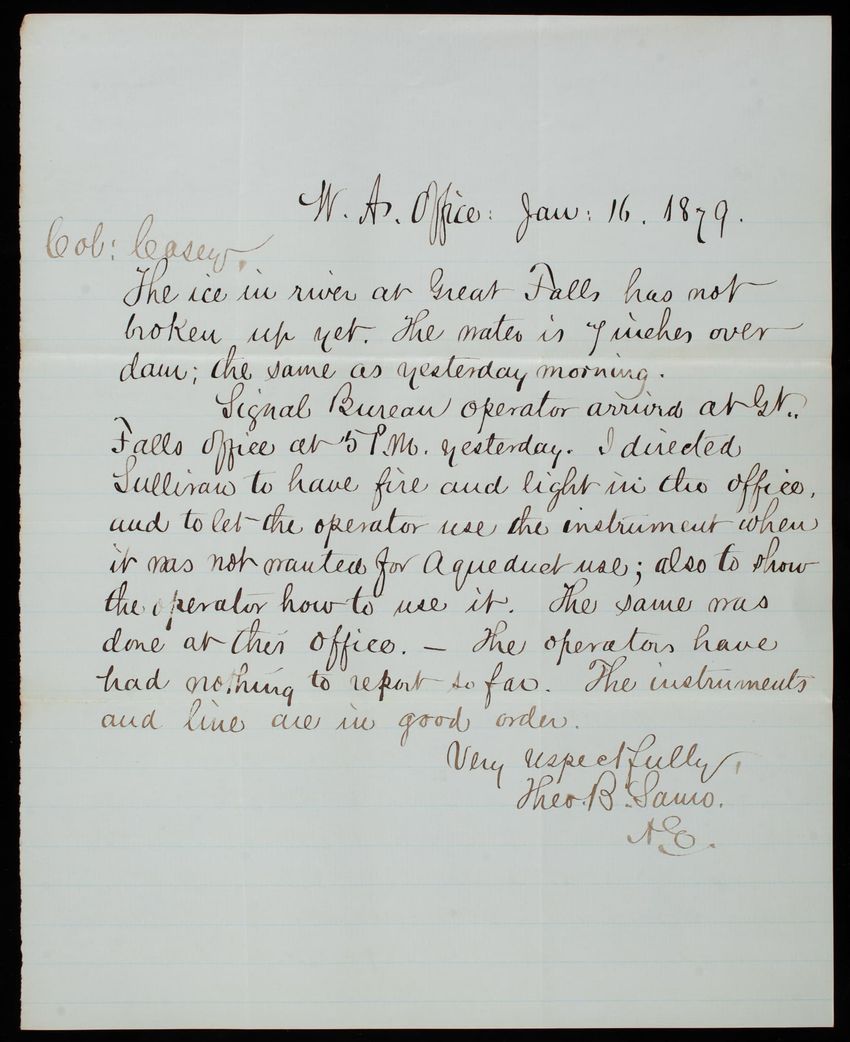 W. A. Office: Jan: 16. 1879.
Col: Casey,
The ice in river at Great Falls has not
broken up yet. The water is 7 inches over
dam; the same as yesterday morning.
Signal Bureau operator arrived at Gt.
Falls office at 5 P.M. yesterday. I directed
Sullivan to have fire and light in the office,
and to let the operator use the instrument when
it was not wanted for Aqueduct use; also to show
the operator how to use it. The same was
done at this office. — The operators have
had nothing to report so far. The instruments
and line are in good order.
Very respectfully,
Theo. B. Samo.
A.E.